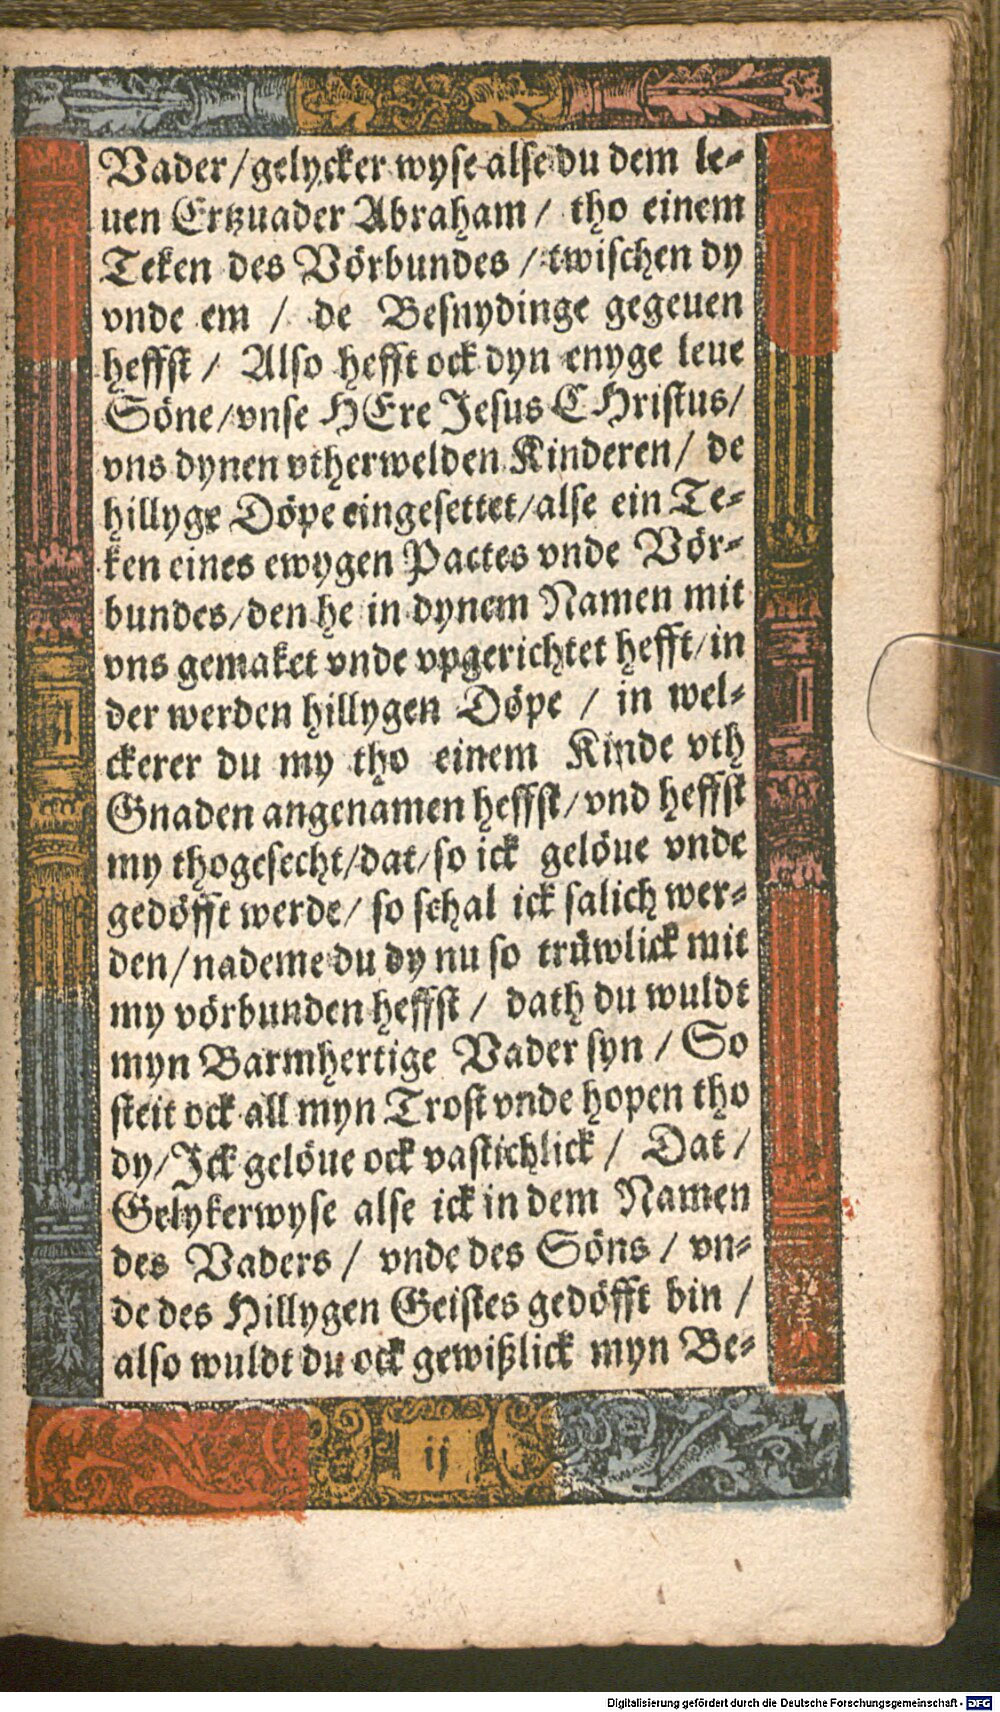 Vader/gelycker wyse alse du dem le-
uen Ertzuader Abraham / tho einem
Teken des Vörbundes / twischen dy
vnde em / de Besnydinge gegeuen
heffst / Also hefft ock dyn enyge leue
Söne/vnse HEre Jesus CHristus/
vns dynen vtherwelden Kinderen/ de
hillyge Döpe eingesettet/alse ein Te-
ken eines ewygen Pactes vnde Vör-
bundes/den he in dynem Namen mit
vns gemaket vnde vpgerichtet hefft/in
der werden hillygen Döpe / in wel-
ckerer du my tho einem Kinde vth
Gnaden angenamen heffst/vnd heffst
my thogesecht/dat/so ick gelöue vnde
gedöfft werde/ so schal ick salich wer-
den/nademe du dy nu so trüwlick mit
my vörbunden heffst / dath du wuldt
myn Barmhertige Vader syn / So
steit ock all myn Trost vnde hopen tho
dy/Ick gelöue ock vastichlick / Dat /
Gelykerwyse alse ick in dem Namen
des Vaders / vnde des Söns / vn-
de des Hillygen Geistes gedöfft bin /
also wuldt du ock gewißlick myn Be-
ij
Digitalisierung gefördert durch die Deutsche Forschungsgemeinschaft - DFG